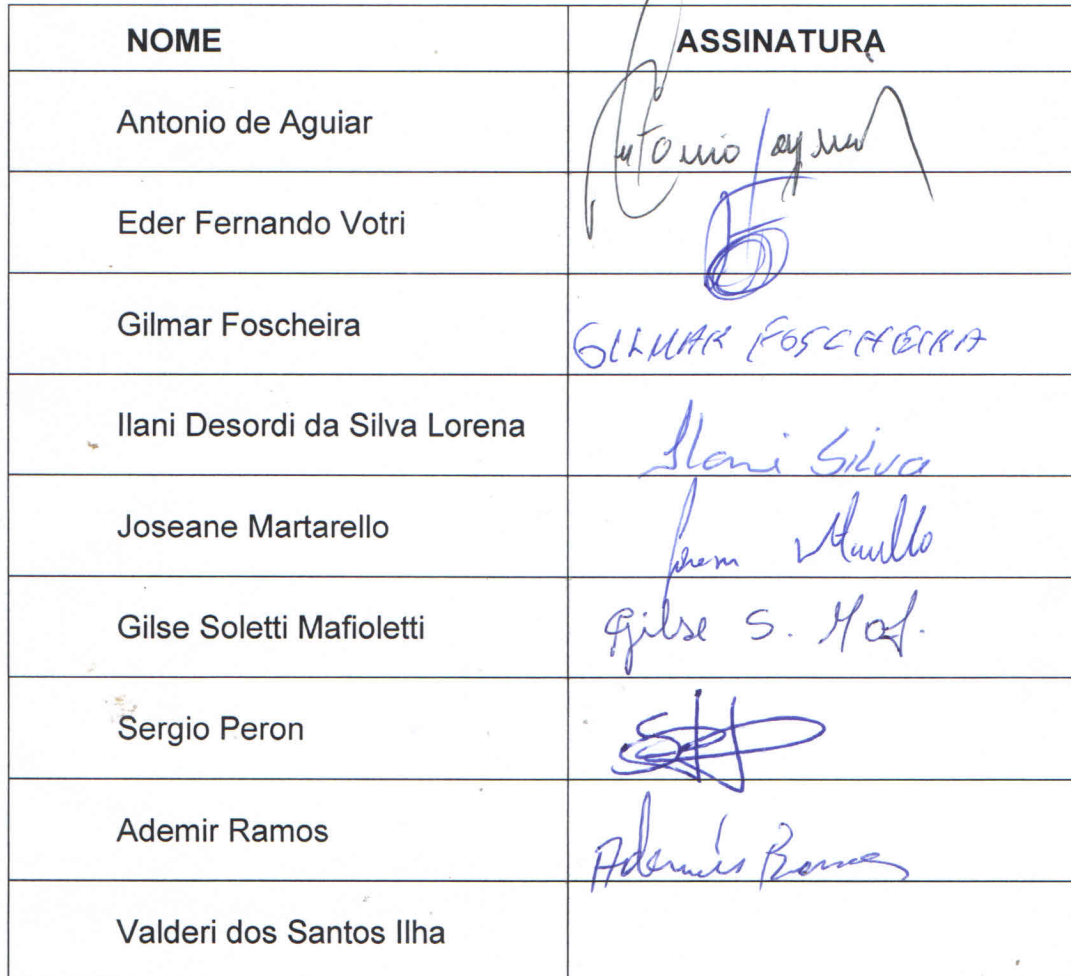 NOME ASSINATURA
Antonio de Aguiar Antonio
Eder Fernando Votri
Gilmar Foscheira GILMAR FOSCHEIRA
Ilani Desordi da Silva Lorena Ilani Silva
Joseane Martarello
Gilse Soletti Mafioletti Gilse S. Maf.
Sergio Peron
Ademir Ramos Ademir Ramos
Valderi dos Santos Ilha